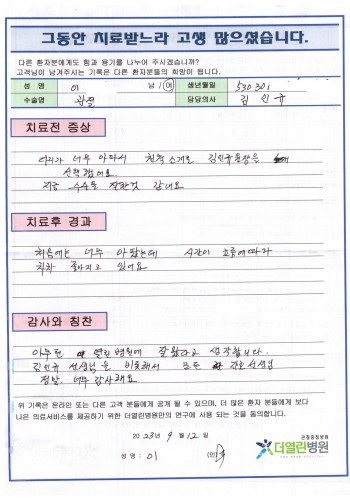 그동안 치료받느라 고생 많으셨습니다.
다른 환자분에게도 힘과 용기를 나누어 주시겠습니까?
고객님이 남겨주시는 기록은 다른 환자분들의 희망이 됩니다.
성 명 이 남 / 여 생년월일 530301
수술명 관절 담당의사 김민규
치료전 증상
너무 아파서 친척 소개로 김민규 원장은
선택했어요.
지금 수술을 잘한것 같네요
치료후 경과
처음에는 너무 아팠는데 시간이 흐름에 따라
차차 좋아지고 있어요
감사와 칭찬
아무튼 열린병원에 잘왔다고 생각합니다.
김민규 선생님을 비롯해서 모든 선생님
정말 너무 감사해요
위 기록은 온라인 또는 다른 고객 분들에게 공개 될 수 있으며, 더 많은 환자 분들에게 보다
나은 의료서비스를 제공하기 위한 더열린병원만의 연구에 사용 되는 것을 동의합니다.
2023년 9월 12일
성 명 : 이 (인)
관절중점병원
더열린병원